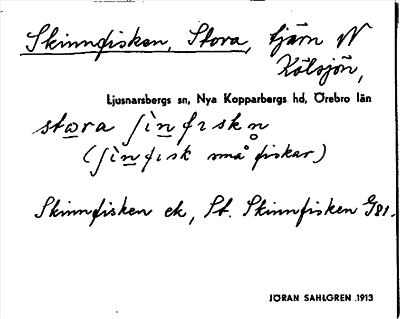 Skinnfisken, Stora, tjärn N
Kölsjön,
Ljusnarsbergs sn, Nya Kopparbergs hd, Örebro län
stora ʃìnfɪskn̥
(ʃìnfɪsk små fiskar)
Skinnfisken ek, St. Skinnfisken G81.
JÖRAN SAHLGREN 1913